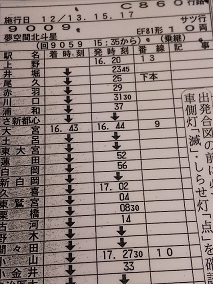 C860行路
施行日 12/13.15.17
9009 サツ行
夢空間北斗星 EF81形 10両
(回9059 15:35から) (乗継)
駅名 着時刻 発時刻 番線 記事
上野 16.20 13
井堀 ↓ 2345
尾久 ↓ 25 下本
赤羽 ↓ 29
川口 ↓ 3130
浦和 ↓ 37
さ新都心 ↓
大宮 16.43 16.44 9
土呂 ↓
東大宮 ↓
蓮田 ↓ 52
白岡 ↓ 56
新白岡 ↓
久喜 ↓ 17.02
東鷲宮 ↓ 04
栗橋 ↓ 0830
古河 ↓ 14
野木 ↓
間々田 ↓
小山 ↓ 17.2730 10
小金井 ↓ 33
出発合図の前に
車側灯「滅・しらせ灯「点」を確認